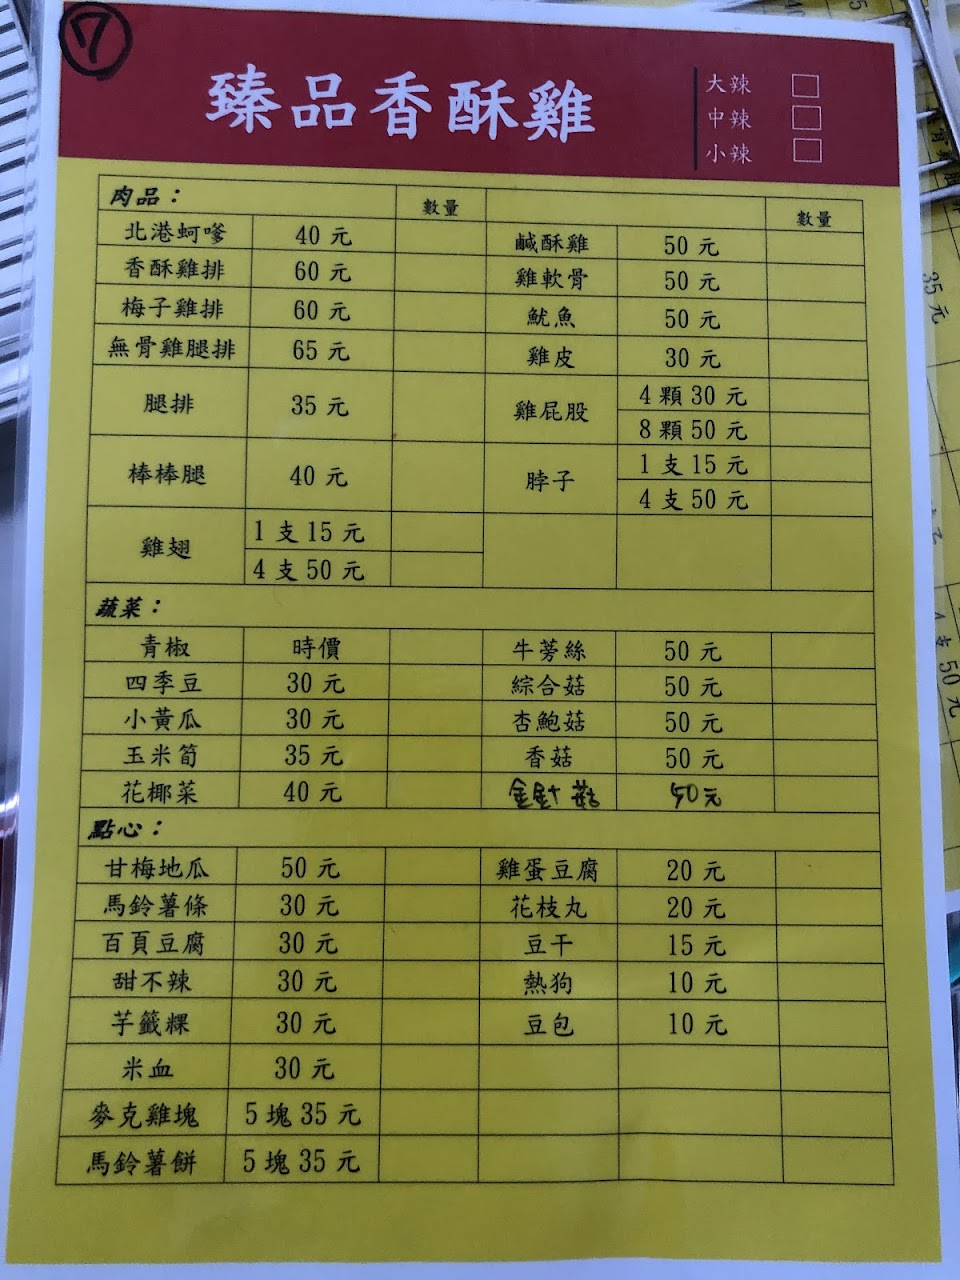 7
臻品香酥雞
大辣
中辣
小辣
肉品：
數量
數量
北港蚵嗲 40 元 鹹酥雞 50 元
香酥雞排 60 元 雞軟骨 50 元
梅子雞排 60 元 魷魚 50 元
無骨雞腿排 65 元 雞皮 30 元
腿排 35 元 雞屁股 4 顆 30 元
8 顆 50 元
棒棒腿 40 元 脖子 1 支 15 元
4 支 50 元
雞翅 1 支 15 元
4 支 50 元
蔬菜：
青椒 時價 牛蒡絲 50 元
四季豆 30 元 綜合菇 50 元
小黃瓜 30 元 杏鮑菇 50 元
玉米筍 35 元 香菇 50 元
花椰菜 40 元 金針菇 50元
點心：
甘梅地瓜 50 元 雞蛋豆腐 20 元
馬鈴薯條 30 元 花枝丸 20 元
百頁豆腐 30 元 豆干 15 元
甜不辣 30 元 熱狗 10 元
芋籤粿 30 元 豆包 10 元
米血 30 元
麥克雞塊 5 塊 35 元
馬鈴薯餅 5 塊 35 元
35 元
支 50 元